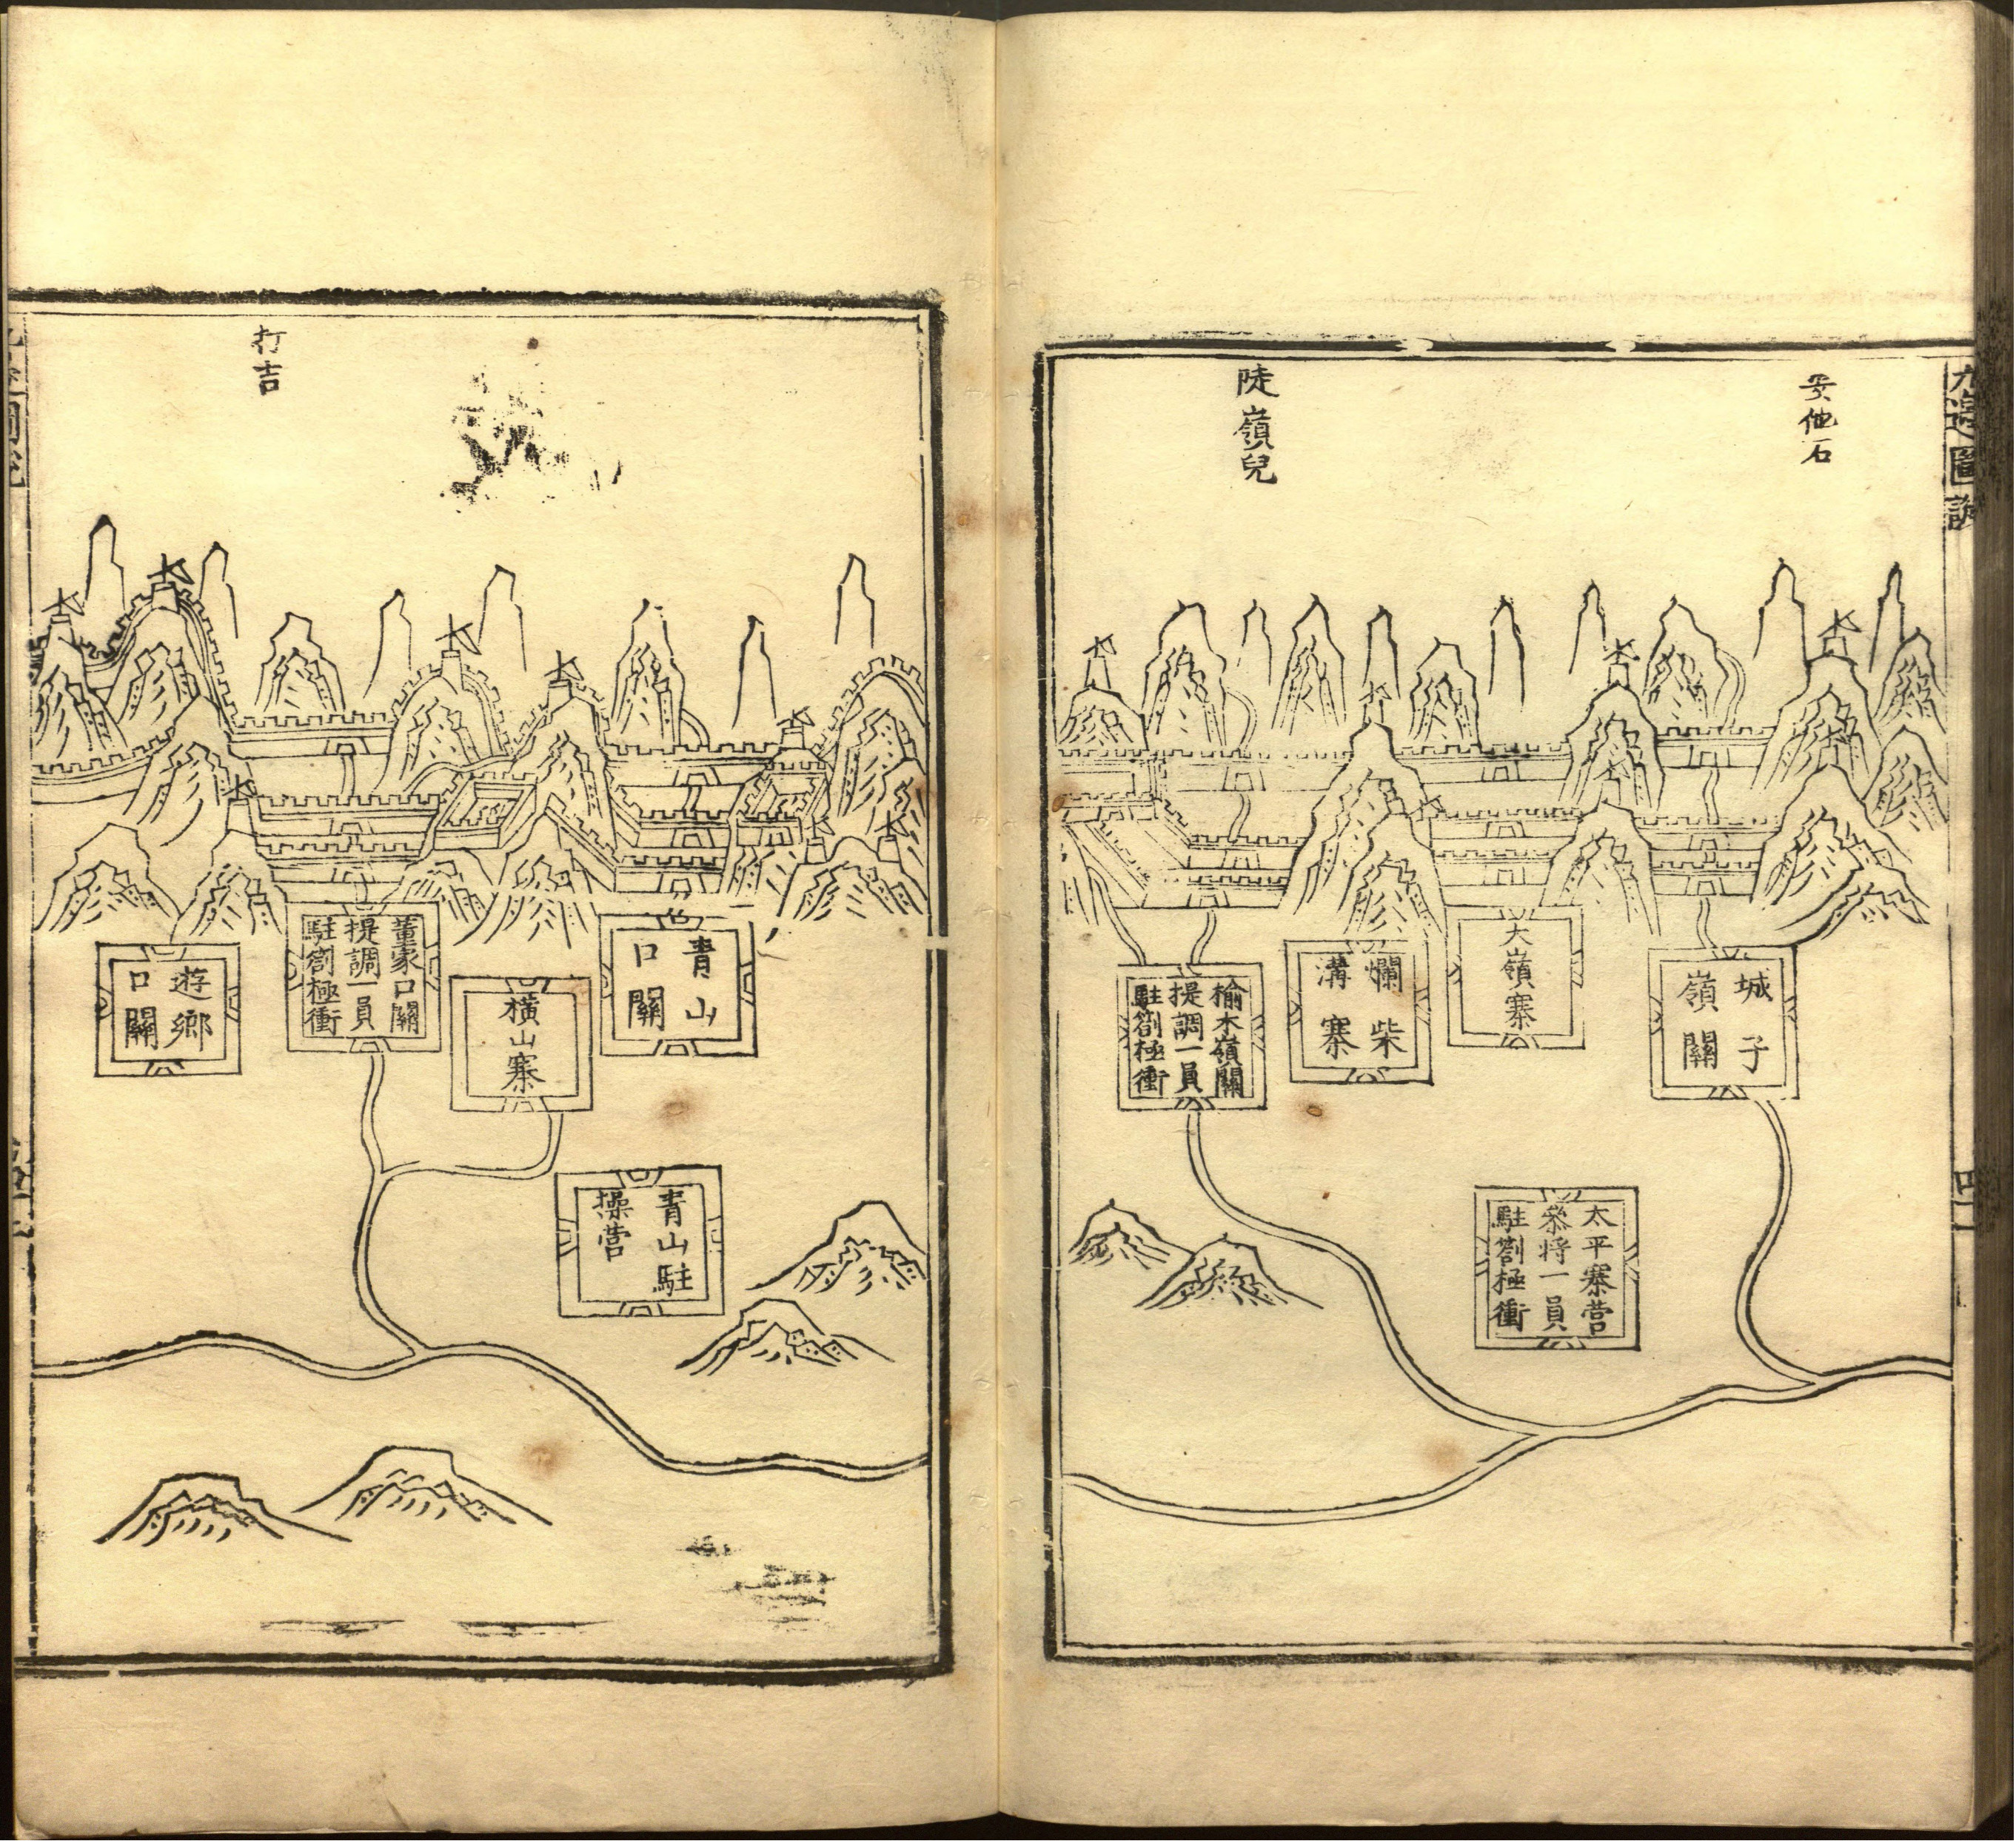 九邊圖說
安他石
陡嶺兒
城子
嶺關
大嶺寨
爛柴
溝寨
榆木嶺關
提調一員
駐劄極衝
太平寨營
叅將一員
駐劄極衝
打吉
青山
口關
橫山寨
董家口關
提調一員
駐劄極衝
遊鄉
口關
青山駐
操營